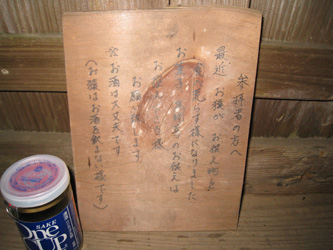 参拝者の方へ
最近 お猿が お供え物を
荒らす様になりました
のお供えは
様
お願い致します
※お酒は大丈夫です
(お猿はお酒を飲まない様です)
SAKE
One
CUP